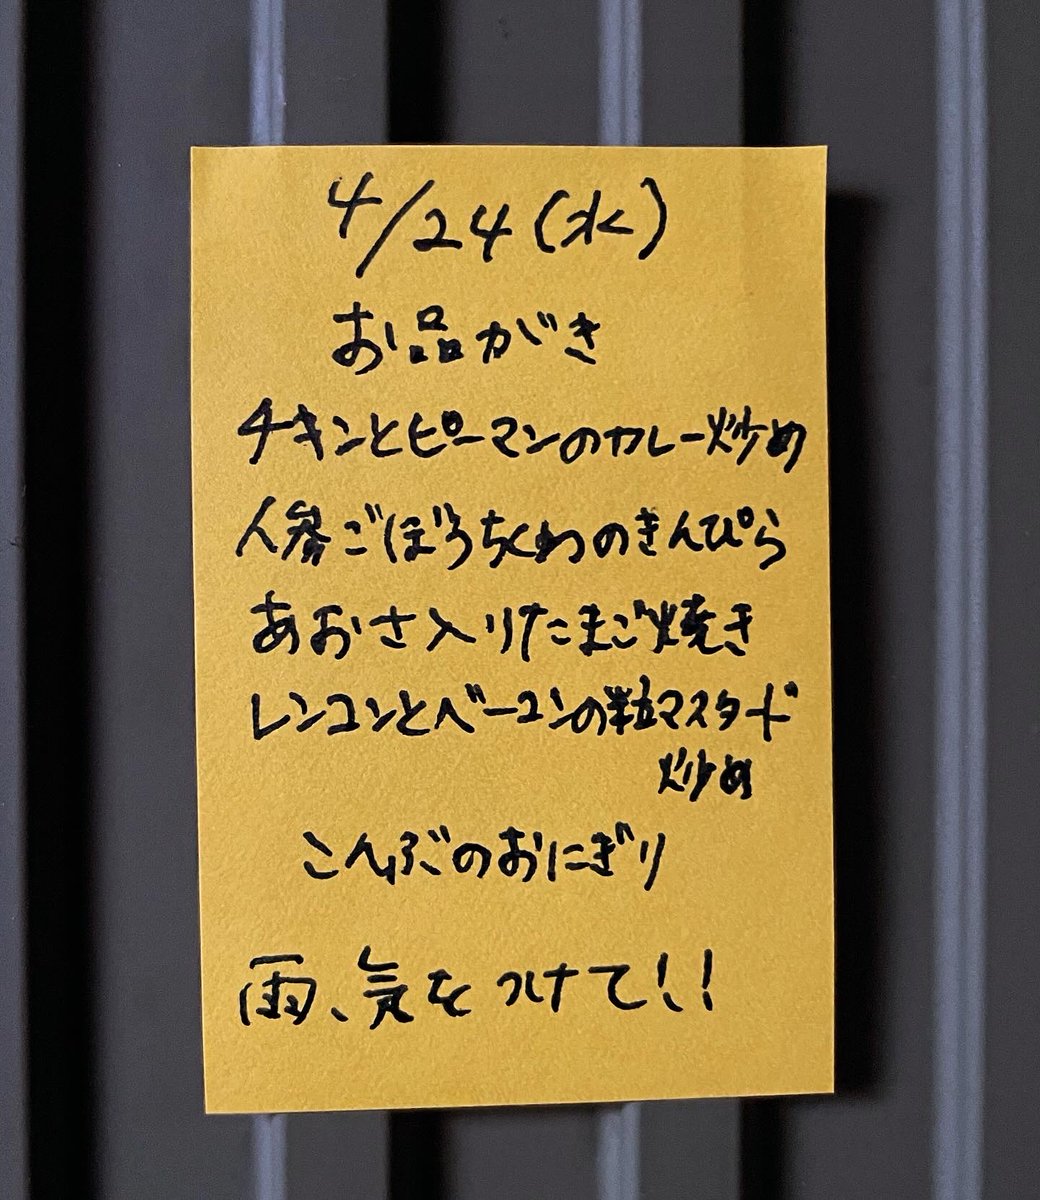 4/24(水)
お品がき
チキンとピーマンのカレー炒め
人参ごぼうちくわのきんぴら
あおさ入りたまご焼き
レンコンとベーコンの粒マスタード
炒め
こんぶのおにぎり
雨、気をつけて!!